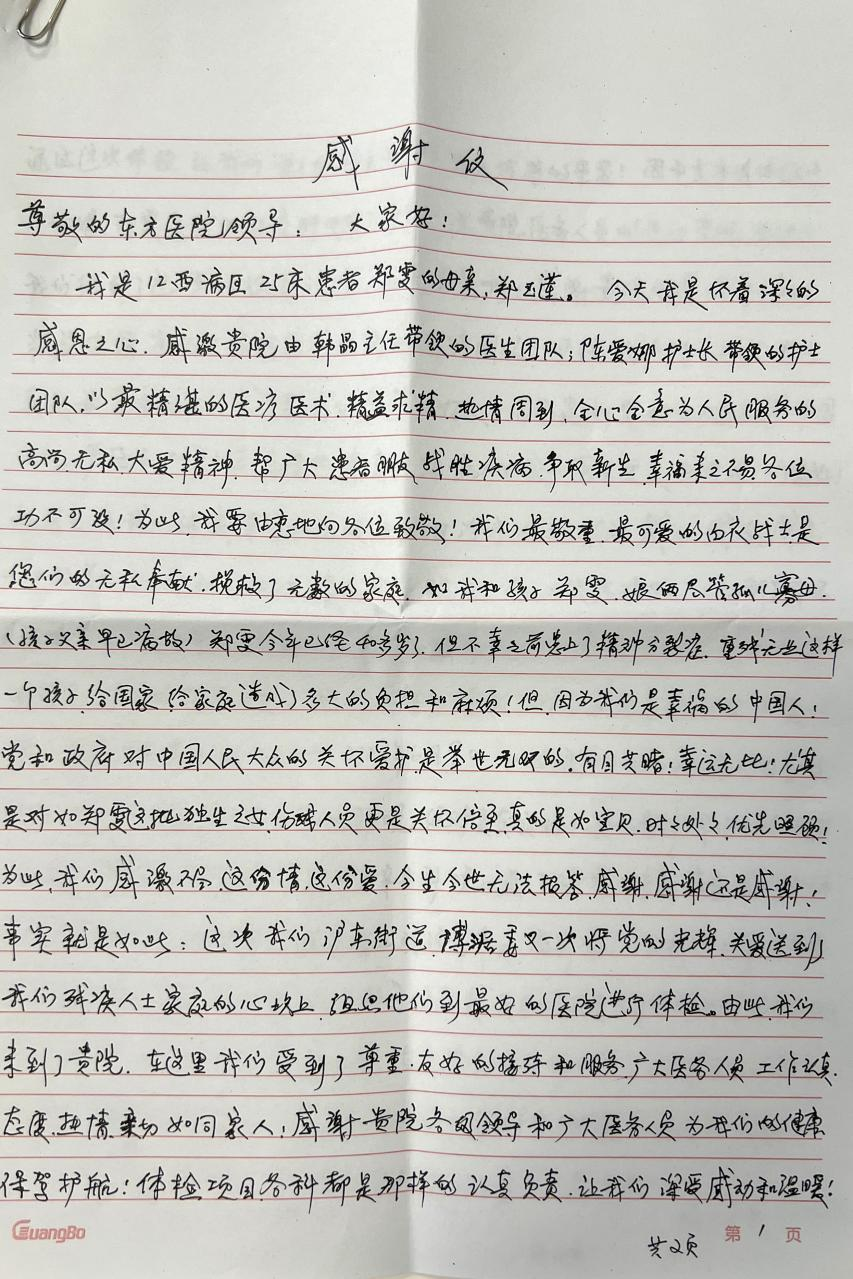 感谢信
尊敬的东方医院领导： 大家好！
我是12西病区25床患者郑雯的母亲，郑玉莲。 今天我是怀着深深的
感恩之心，感激贵院由韩晶主任带领的医生团队；陈爱娜护士长带领的护士
团队，以最精湛的医疗医术，精益求精，热情周到，全心全意为人民服务的
高尚、无私、大爱精神，帮广大患者朋友战胜疾病，争取新生，幸福来之不易，各位
功不可没！为此，我要由衷地向各位致敬！我们最敬重、最可爱的白衣战士，是
您们的无私奉献，挽救了无数的家庭，如我和孩子郑雯，娘俩尽管孤儿寡母，
（孩子父亲早已病故）郑雯今年已经40多岁了，但不幸之前患上了精神分裂症，重残无业这样
一个孩子，给国家，给家庭造成了多大的负担和麻烦！但，因为我们是幸福的中国人！
党和政府对中国人民大众的关怀爱护，是举世无双的，有目共睹！幸运无比！尤其
是对如郑雯这批独生子女，伤残人员更是关怀倍至，真的是如宝贝，时时处处，优先照顾！
为此，我们感激不尽，这份情，这份爱，今生今世无法报答，感谢，感谢还是感谢！
事实就是如此：这次我们沪东街道，居委又一次将党的光辉，关爱送到
我们残疾人士家庭的心坎上，组织他们到最好的医院进行体检。由此，我们
来到了贵院，在这里我们受到了尊重，友好的接待和服务，广大医务人员工作认真，
态度，热情，亲切如同家人；感谢贵院各级领导和广大医务人员为我们的健康
保驾护航！体检项目，各科都是那样的认真负责，让我们深受感动和温暖！
GuangBo 第1页
共2页